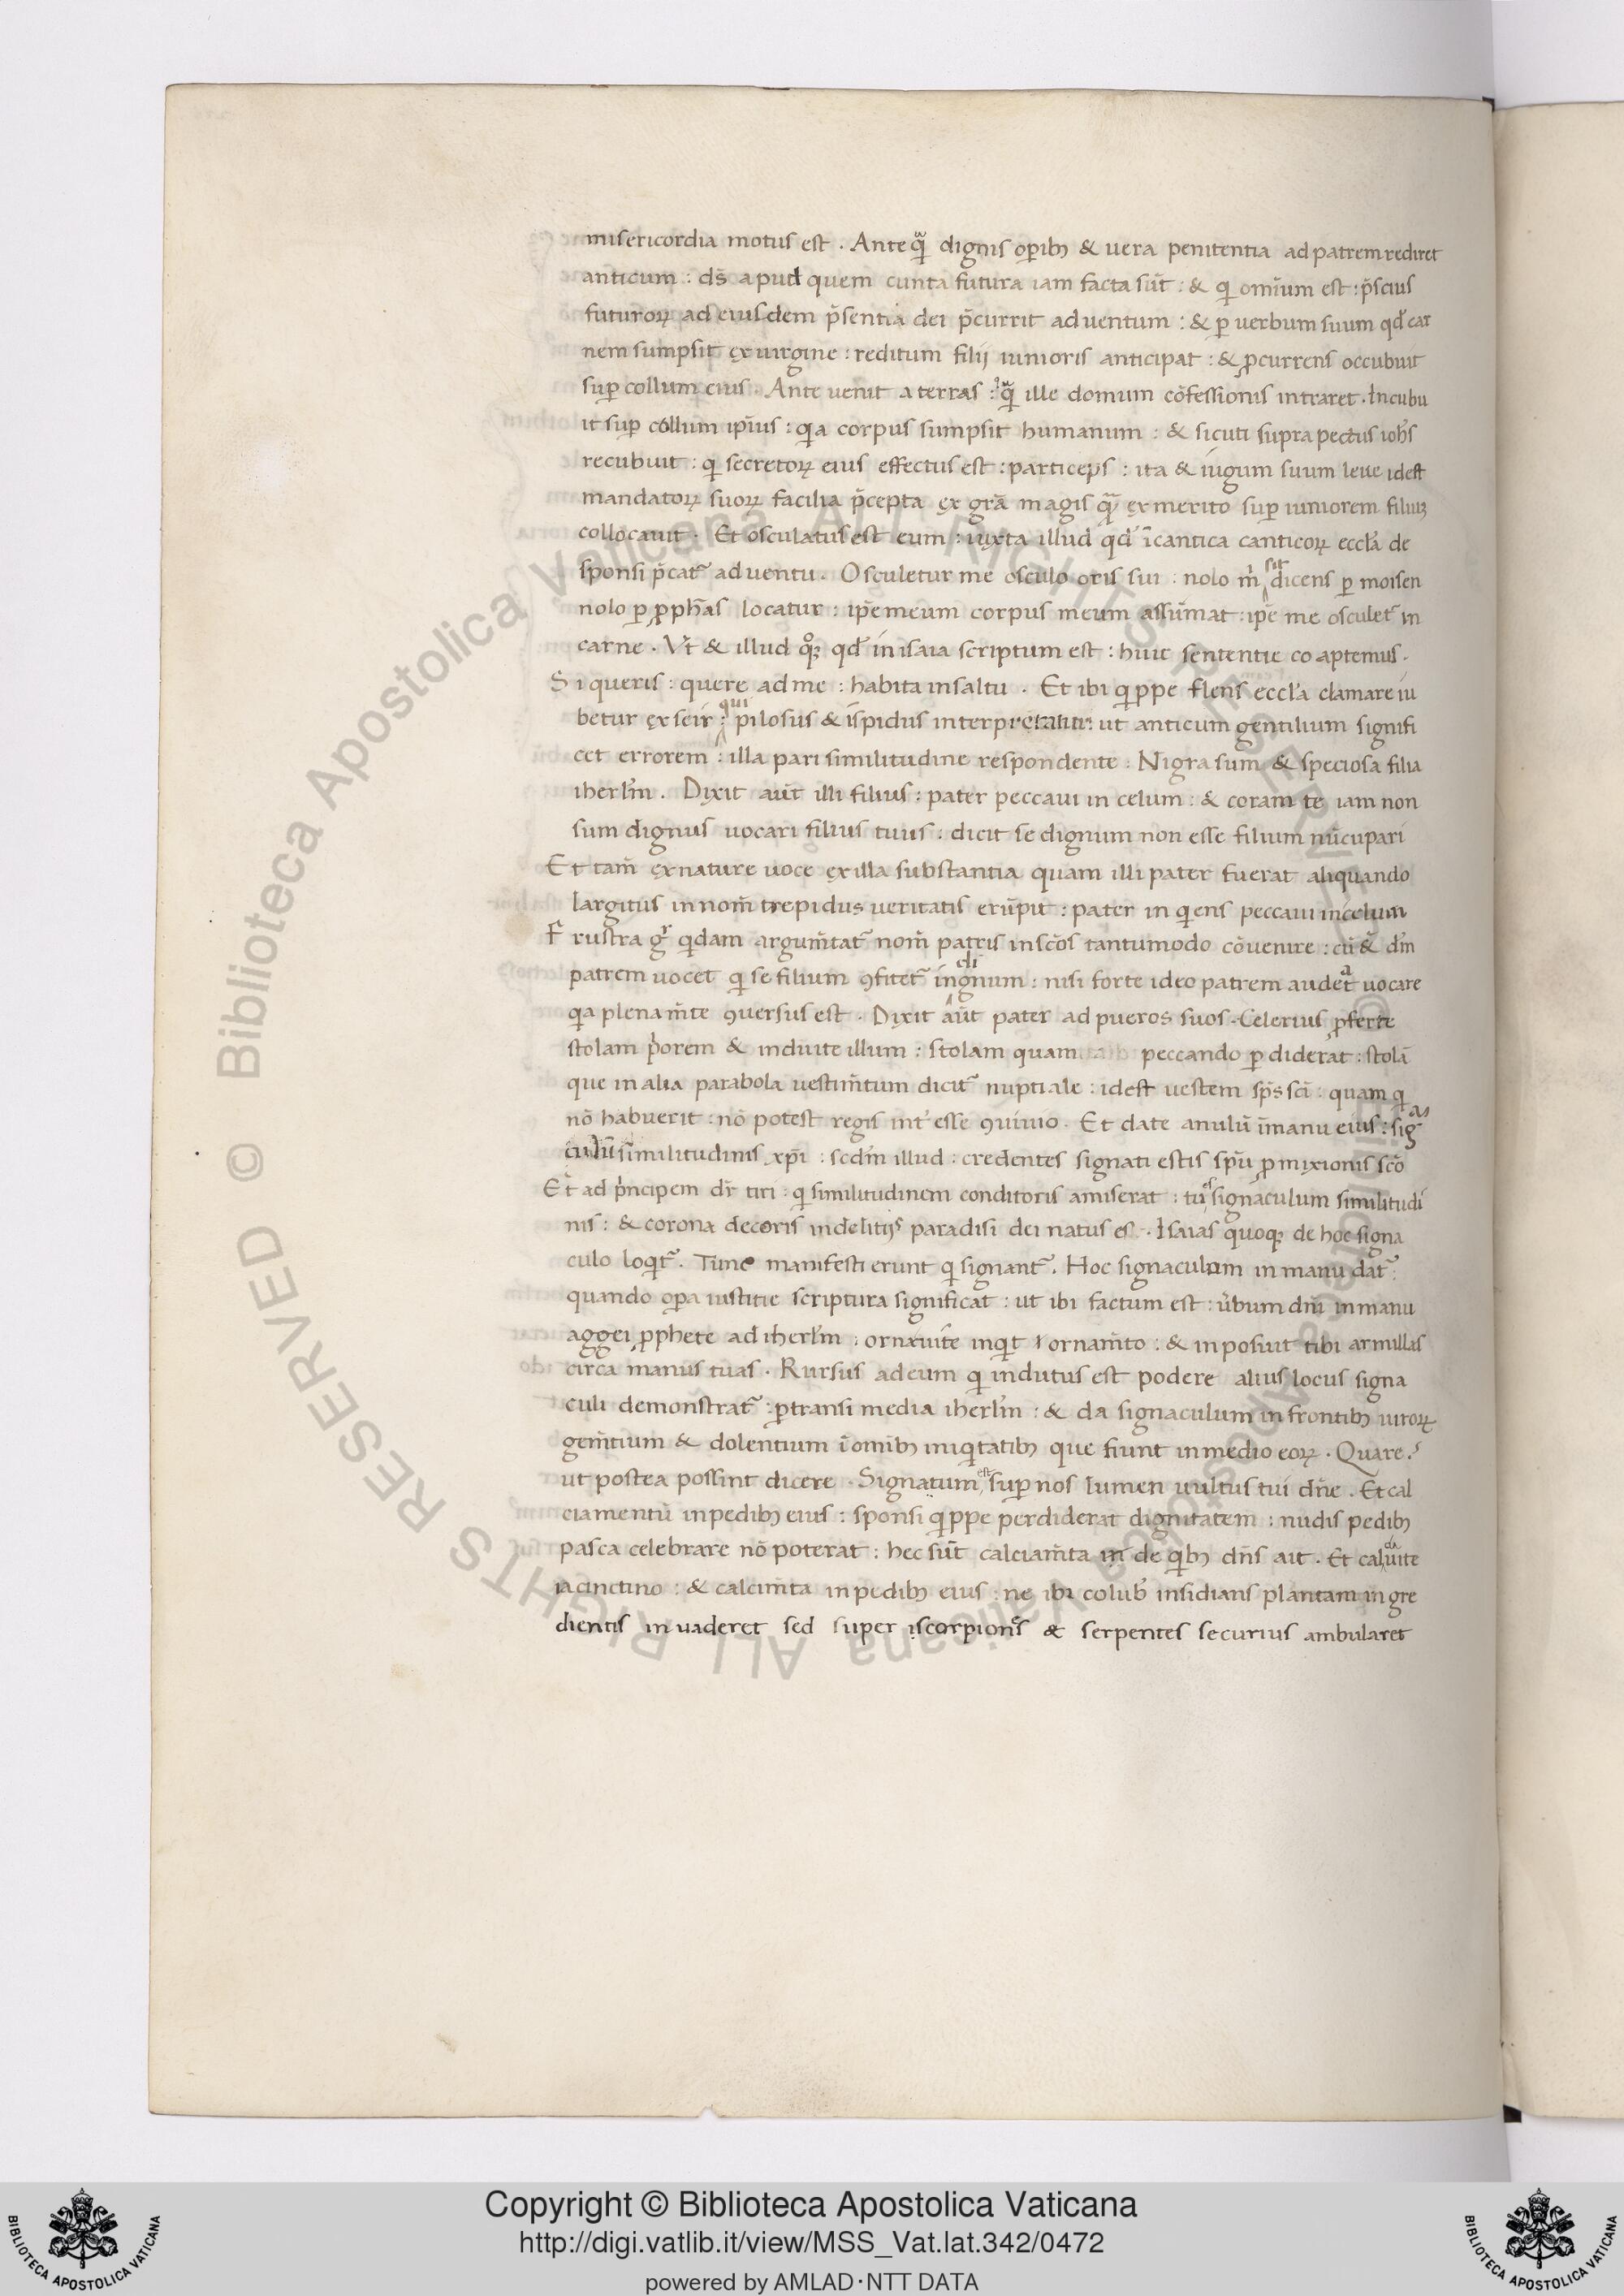 misericordia motus est . Ante qͣ dignis oꝑibꝫ & uera penitentia ad patrem rediret
anticum : ds̄ apud quem cunta futura iam facta sūt : & qi om̄ium est : p̄scius
futuroꝝ ad eiusdem p̄sentia dei p̄currit aduentum : & ꝑ uerbum suum qd̄ car
nem sumpsit ex uirgine : reditum filij iunioris anticipat : & ꝓcurrens occubuit
suꝑ collum eius . Ante uenit a terras : qͣ ille domum cōfessionis intraret . Incubu
it suꝑ collum ip̄ius : qia corpus sumpsit humanum : & sicuti supra pectus ioh̄s
recubuit : qi secretoꝝ eius effectus est : particeps : ita & iugum suum leue idest
mandatoꝝ suoꝝ facilia p̄cepta ex gr̄a magis qͣ ex merito suꝑ iuniorem filiuꝫ
collocauit . Et osculatus est eum : iuxta illud qd̄ ī cantica canticoꝝ eccl̄a de
sponsi p̄cat᷑ aduentu . Osculetur me osculo oris sui : nolo m̄ sit dicens ꝑ moisen
nolo ꝑ ꝓph̄as locatur : ip̄e meum corpus meum assūmat : ip̄e me osculet᷑ in
carne . Vt & illud qͦꝫ qd̄ in isaia scriptum est : huic sententie co aptemus .
Si queris : quere ad me : habita in saltu . Et ibi qippe flens eccl̄a clamare iu
betur ex seir : qui pilosus & ispidus interpretatur : ut anticum gentilium signifi
cet errorem : illa pari similitudine respondente : Nigra sum & speciosa filia
iherl̄m . Dixit aūt illi filius : pater peccaui in celum : & coram te iam non
sum dignus uocari filius tuus : dicit se dignum non esse filium nūcupari
Et tam̄ ex nature uoce ex illa substantia quam illi pater fuerat aliquando
largitus in nom̄ trepidus ueritatis erūpit : pater in qiens peccaui in celum
Frustra gͬ qidam argum̄tat᷑ nom̄ patris in sc̄os tantumodo cōuenire : cū & dm̄
patrem uocet qi se filium ꝯfitet᷑ indignum : nisi forte ideo patrem audeat uocare
qia plenam̄te ꝯuersus est . Dixit aūt pater ad pueros suos . Celerius ꝓferte
stolam p̄orem & induite illum : stolam quam peccando ꝑdiderat : stolā
que in alia parabola uestim̄tum dicit᷑ nuptiale : idest uestem sp̄s sc̄i : quam qi
nō habuerit : nō potest regis int̄ esse ꝯuiuio . Et date anulū ī manu eius : signa
culū similitudinis xp̄i : scdm̄ illud : credentes signati estis sp̄u ꝓmixionis sc̄o
Et ad p̄ncipem dr̄ tiri : qi similitudinem conditoris amiserat : tu es signaculum similitudi
nis : & corona decoris in delitijs paradisi dei natus es . Isaias quoqꝫ de hoc signa
culo loqit᷑ . Tunc manifesti erunt qi signant᷑ . Hoc signaculum in manu dat᷑ :
quando oꝑa iustitie scriptura significat : ut ibi factum est : ūbum dn̄i in manu
aggei ꝓphete ad iherl̄m : ornauite inqit ornam̄to : & inposuit tibi armillas
circa manus tuas . Rursus ad eum qi indutus est podere alius locus signa
culi demonstrat᷑ : ꝑtransi media iherl̄m : & da signaculum in frontibꝫ uiroꝝ
gem̄tium & dolentium ī om̄ibꝫ iniqitatibꝫ que fiunt in medio eoꝝ . Quare ?
ut postea possint dicere . Signatum est suꝑ nos lumen uultus tui dn̄e . Et cal
ciamentū in pedibꝫ eius : sponsi qippe perdiderat dignitatem : nudis pedibꝫ
pasca celebrare nō poterat : hec sūt calciam̄ta de qibꝫ dn̄s ait . Et calciauite
iacinctino : & calcim̄ta in pedibꝫ eius : ne ibi colub̄ insidians plantam in gre
dientis inuaderet sed super iscorpiones & serpentes securius ambularet
Copyright © Biblioteca Apostolica Vaticana
http://digi.vatlib.it/view/MSS_Vat.lat.342/0472
powered by AMLAD·NTT DATA